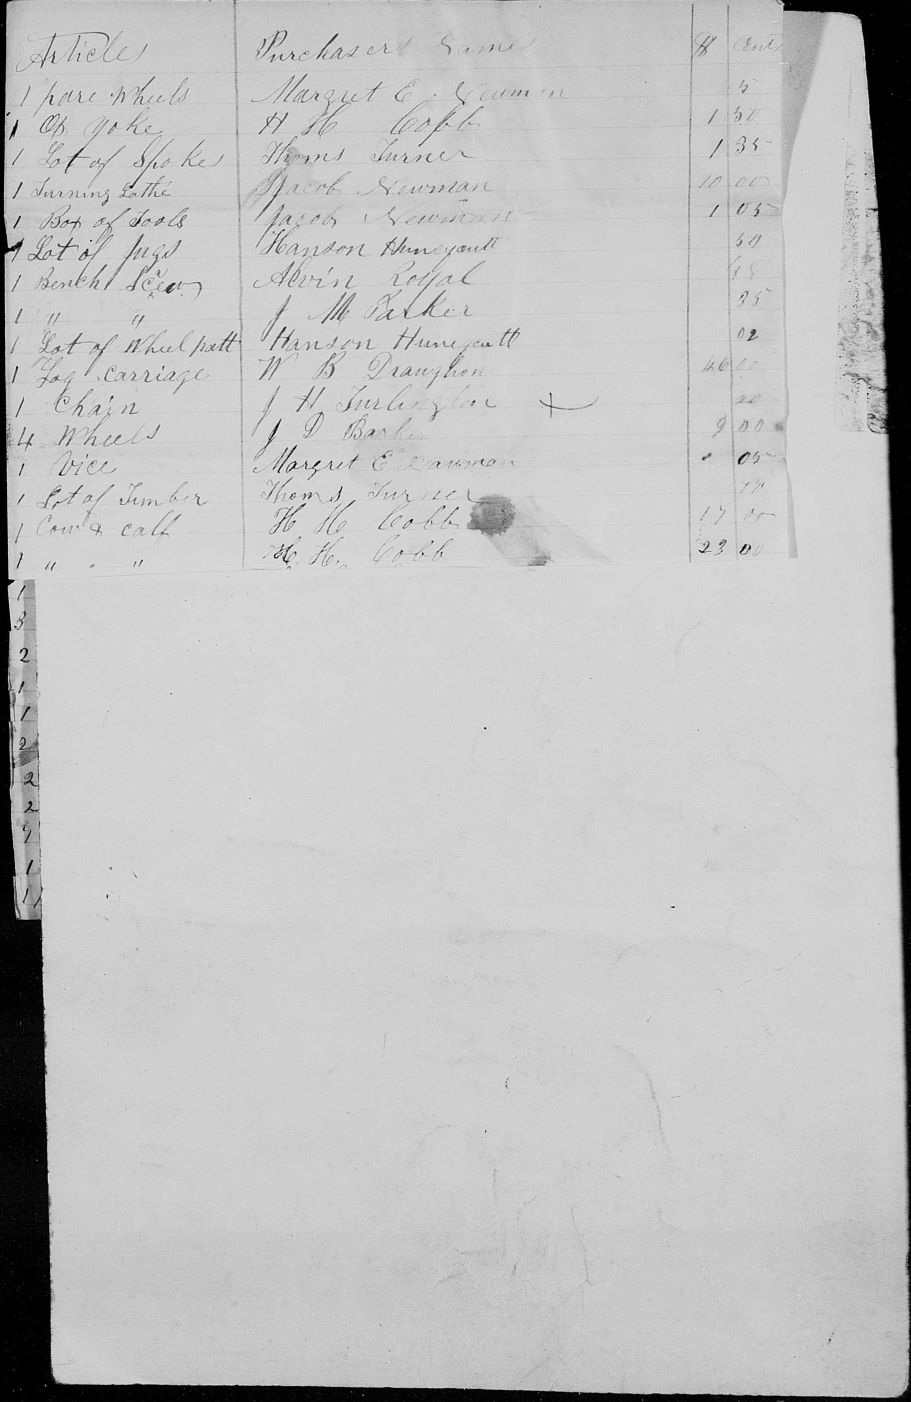 Articles Purchasers Name $ Cents
1 pare Wheels Margret E. Newman 5
1 Ox Yoke H H Cobb 1 50
1 Lot of Spokes Thoms Turner 1 35
1 Turning Lathe Jacob Newman 10 00
1 Box of Tools Jacob Newman 1 05
1 Lot of Jugs Hanson Huneycutt 50
1 Bench Screw Alvin Royal
1 " " J M Barker 35
1 Lot of Wheel patt Hanson Huneycutt 02
1 Log Carriage W B Draughon 46 00
1 Chain J H Turlington 20
4 Wheels J D Barker 9 00
1 Vice Margret E Newman 05
1 Lot of Timber Thoms Turner
1 Cow & calf H H Cobb 17 00
1 " " H. H. Cobb 23 00
1
3
2
1
1
2
2
2
1
1